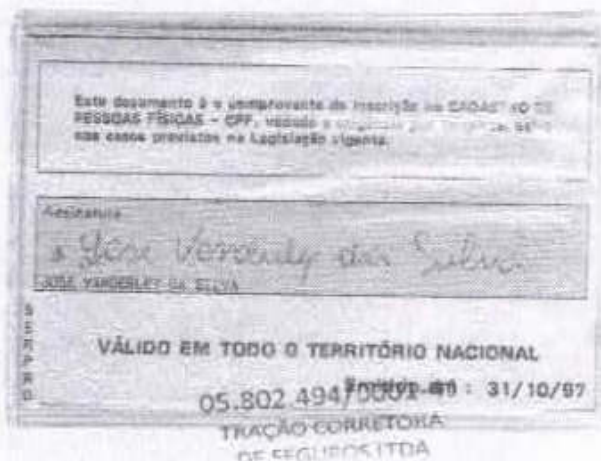 Este documento é o comprovante de inscrição no CADASTRO DE
PESSOAS FÍSICAS - CPF, vedada a
nos casos previstos na Legislação vigente.
Assinatura
Jose Vanderley da Silva
JOSE VANDERLEY DA SILVA
SERPRO
VÁLIDO EM TODO O TERRITÓRIO NACIONAL
Emitido em : 31/10/97
05.802 494/0001-
TRAÇÃO CORRETORA
DE SEGUROS LTDA